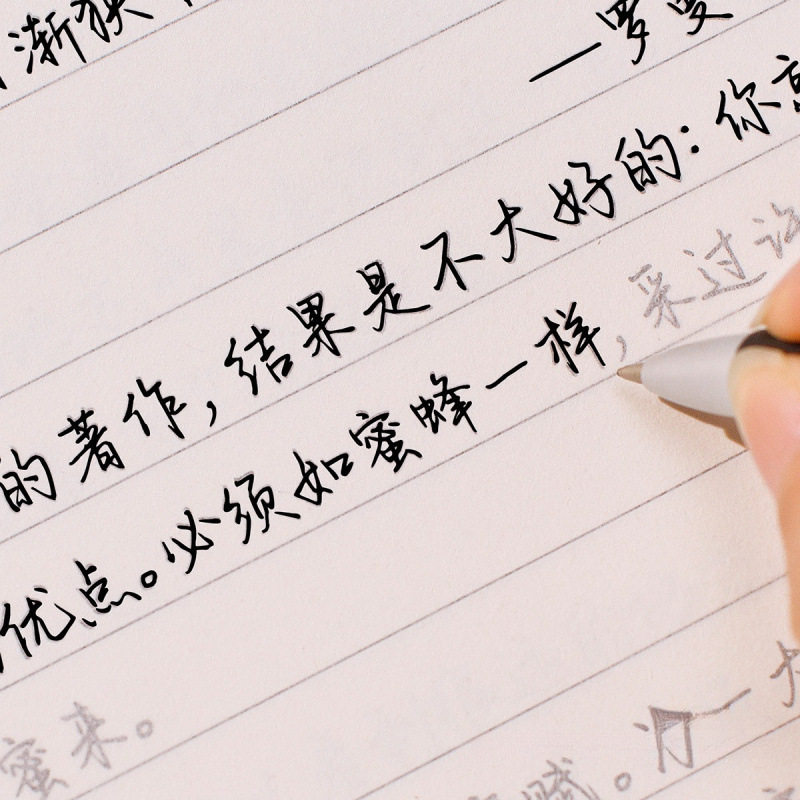 渐狭
—罗曼
的著作，结果是不大好的：你
优点。必须如蜜蜂一样，采过许
蜜来。
赋。
一大